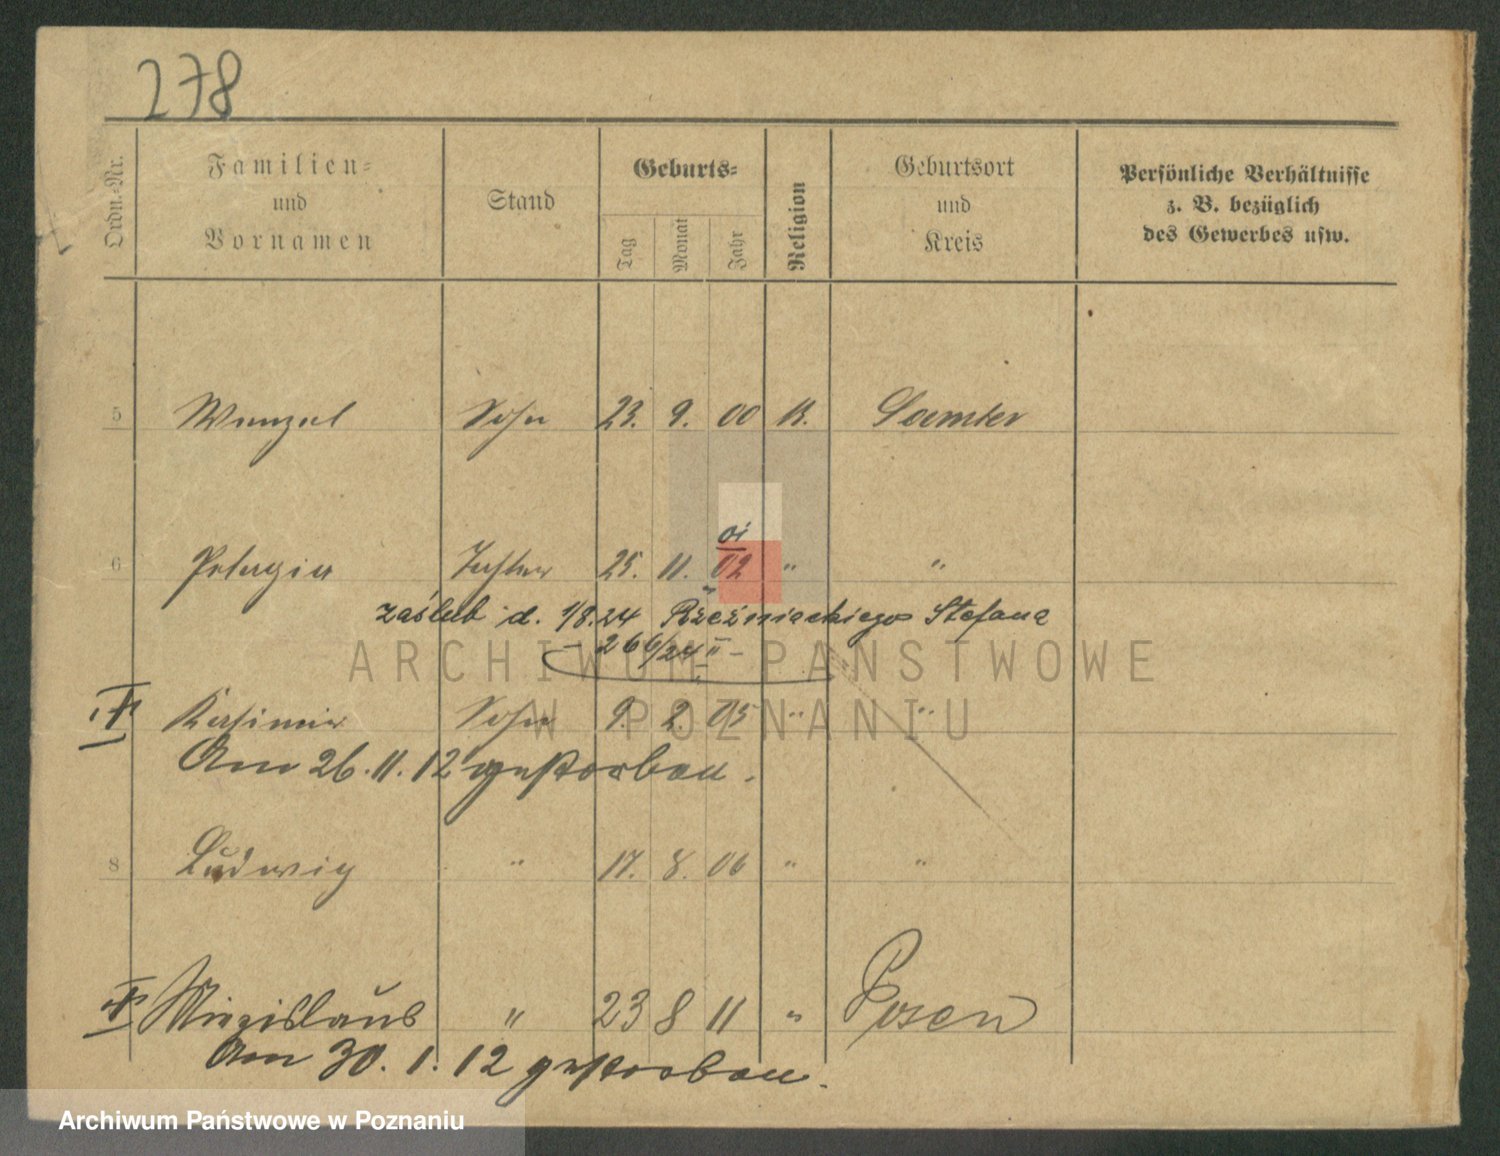 278
Ordn.-Nr.
Familien-
und
Vornamen
Stand
Geburts-
Tag
Monat
Jahr
Religion
Geburtsort
und
Kreis
Persönliche Verhältnisse
z. B. bezüglich
des Gewerbes usw.
5 Wenzel Sohn 23. 9. 00 K. Samter
01
6 Pelagia Tochter 25. 11. 02 " "
zaślub d. 1/8.24 Rzeźniackiego Stefana
- 266/24 II -
† Kasimir Sohn 9. 2. 05 " "
Am 26.11.12 gestorben.
8 Ludwig " 17. 8. 06 " "
† Miezislaus " 23 8 11 " Posen
Am 30.1.12 gestorben.
ARCHIWUM PAŃSTWOWE
W POZNANIU
Archiwum Państwowe w Poznaniu